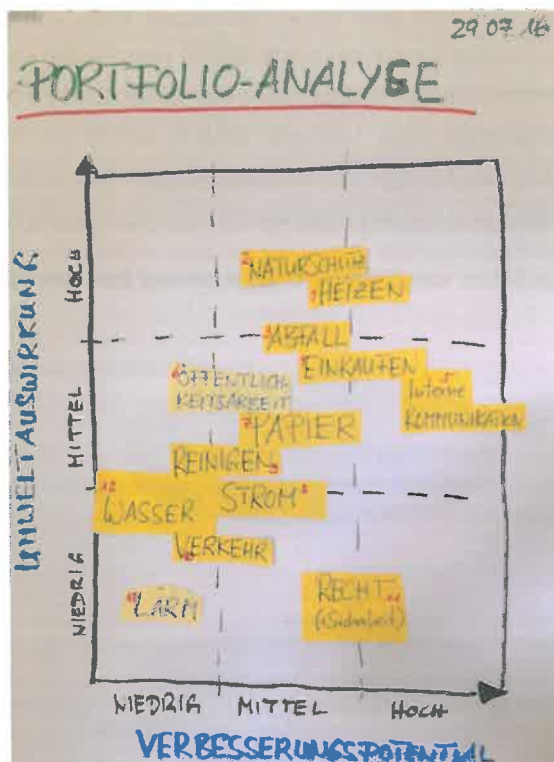 29 07 18
PORTFOLIO-ANALYSE
UMWELTAUSWIRKUNG
HOCH
MITTEL
NIEDRIG
NATURSCHUTZ
HEIZEN
ABFALL
EINKAUFEN
ÖFFENTLICH
KEITSARBEIT
Interne
KOMMUNIKATION
PAPIER
REINIGEN
STROM
12
WASSER
VERKEHR
LÄRM
RECHT
(+Sicherheit)
NIEDRIG MITTEL HOCH
VERBESSERUNGSPOTENTIAL